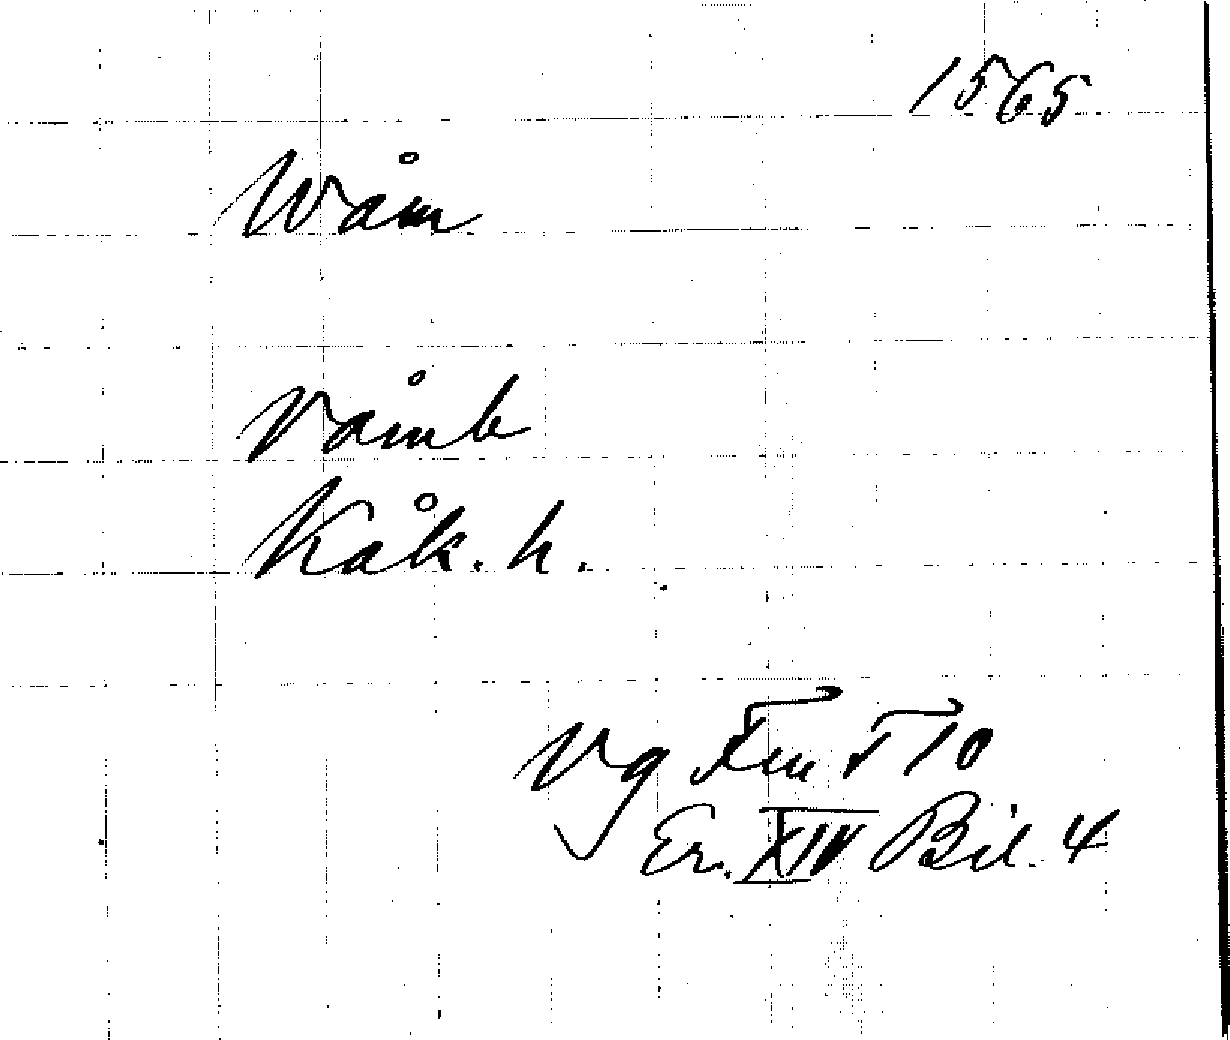 1565
Wåm
Våmb
Kåk. h.
Vg Fm T 10
Er. XIV Bil. 4